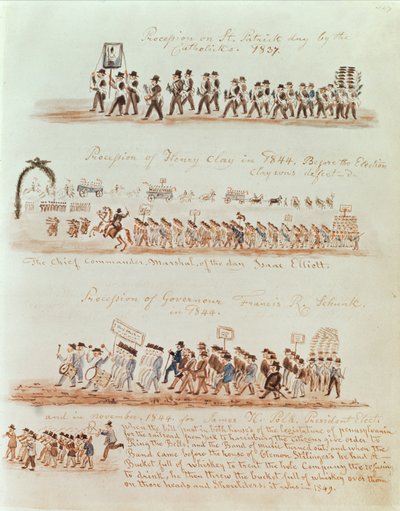 Procession on St. Patrick day by the
Catholicks. 1837.
Procession of Henry Clay in 1844. Before the Election
Clay was defeat=d=
The Chief Commander, Marshal, of the day Isaac Elliott.
Procession of Governour Francis R. Shunk.
in 1844.
and in november, 1844. for James K. Polk, President Elect:
When the bill past both houses of the legislature of pennsylvania
on the railroad from york to harrisburg the citizens give order to
Ring the Bells and the Band of music turned out and when the
Band came before the house of Clemon Stillinger's he had A
Bucket full of whiskey to treat the hole Company the refusing
to drink, he then threw the bucket full of whiskey over them
on those heads and Shoulders. it was in 1849.